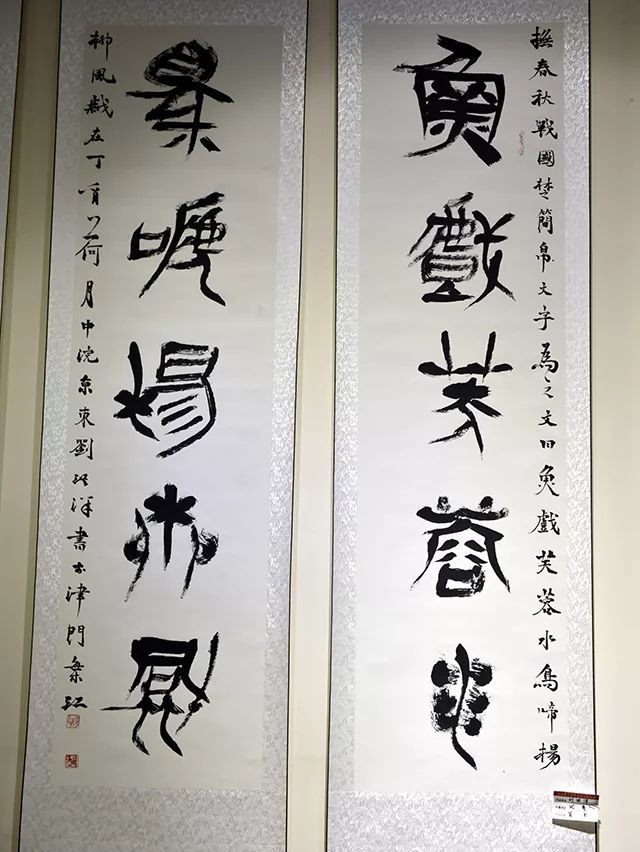 撫春秋戰國楚簡帛文字為之文曰魚戲芙蓉水鳥啼揚
魚戲芙蓉水
鳥啼楊柳風
柳風歲在丁酉荷月中浣京東劉書於津門江